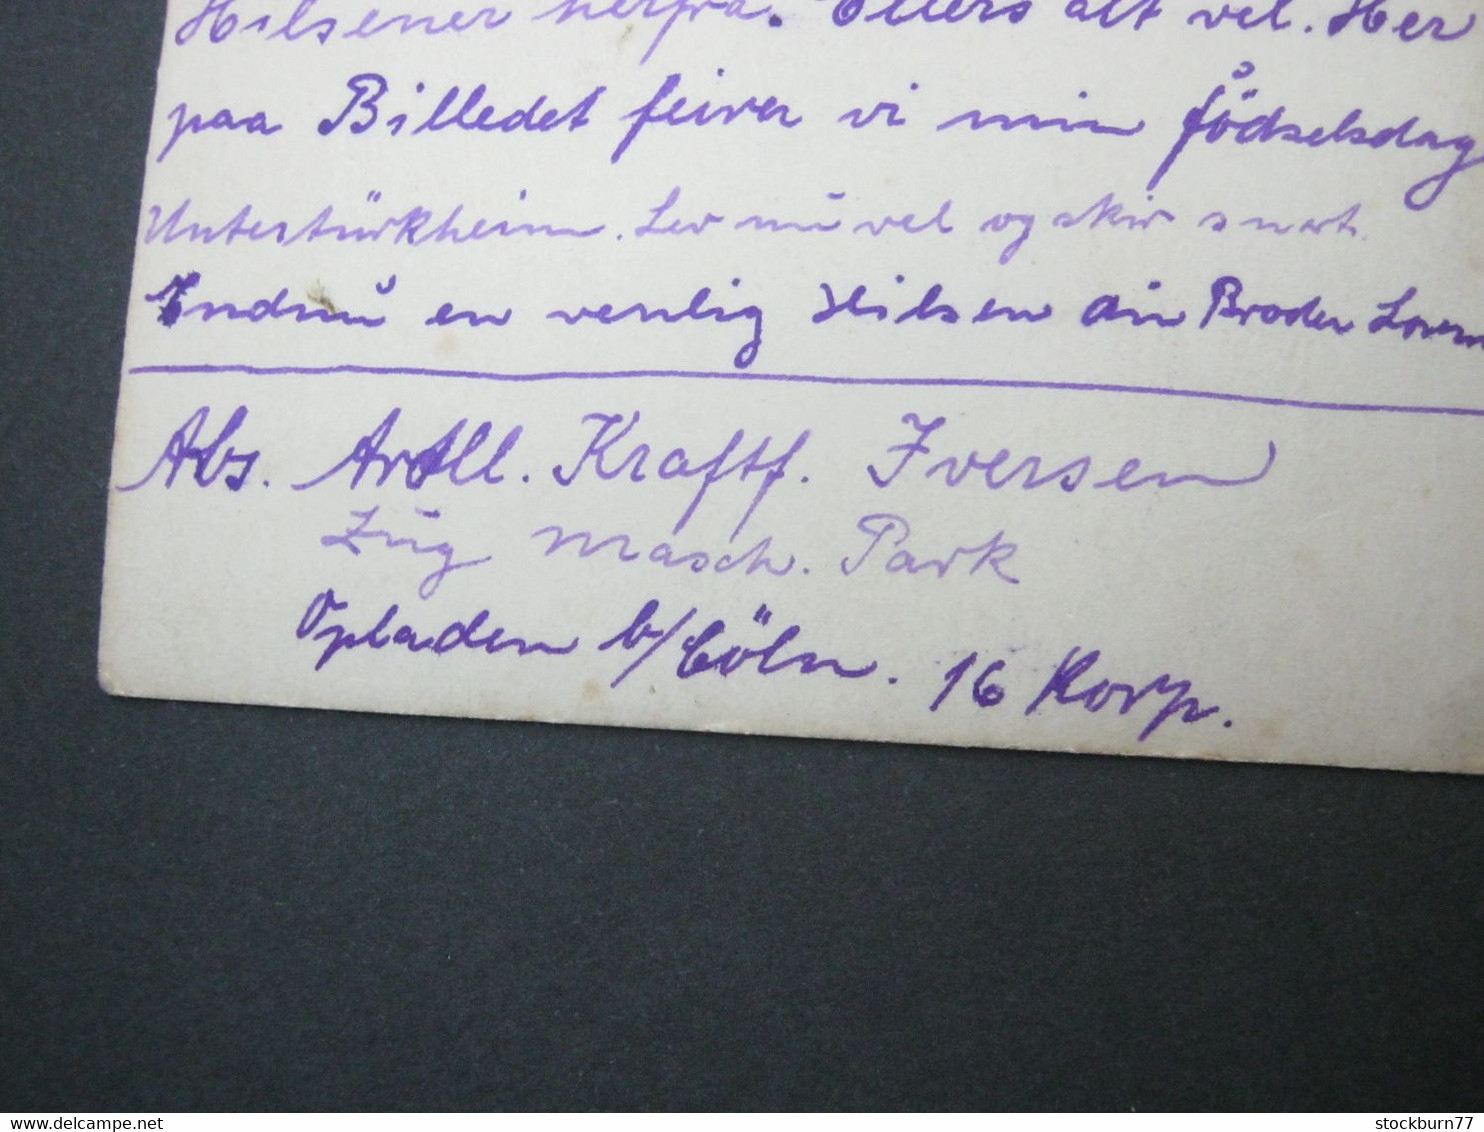 Hilsener herfra. Ellers alt vel. Her
paa Billedet feirer vi min födselsdag
Untertürkheim. Lev nu vel og skir snart.
Endnu en venlig Hilsen din Broder
Abs. Artll. Kraftf. Iversen
Zug Masch. Park
Opladen b/Cöln. 16 Korp.
stockburn77